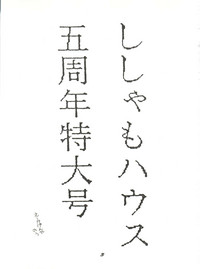 ししゃもハウス
五周年特大号